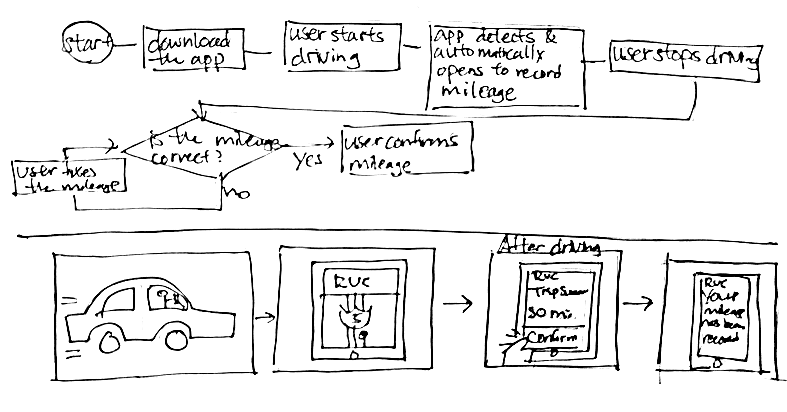 start
download
the app
user starts
driving
app detects &
automatically
opens to record
mileage
user stops driving
is the mileage
correct?
yes
user confirms
mileage
no
user fixes
the mileage
RUC
After driving
RUC
Trip
30 mi
Confirm
RUC
Your
mileage
has been
record